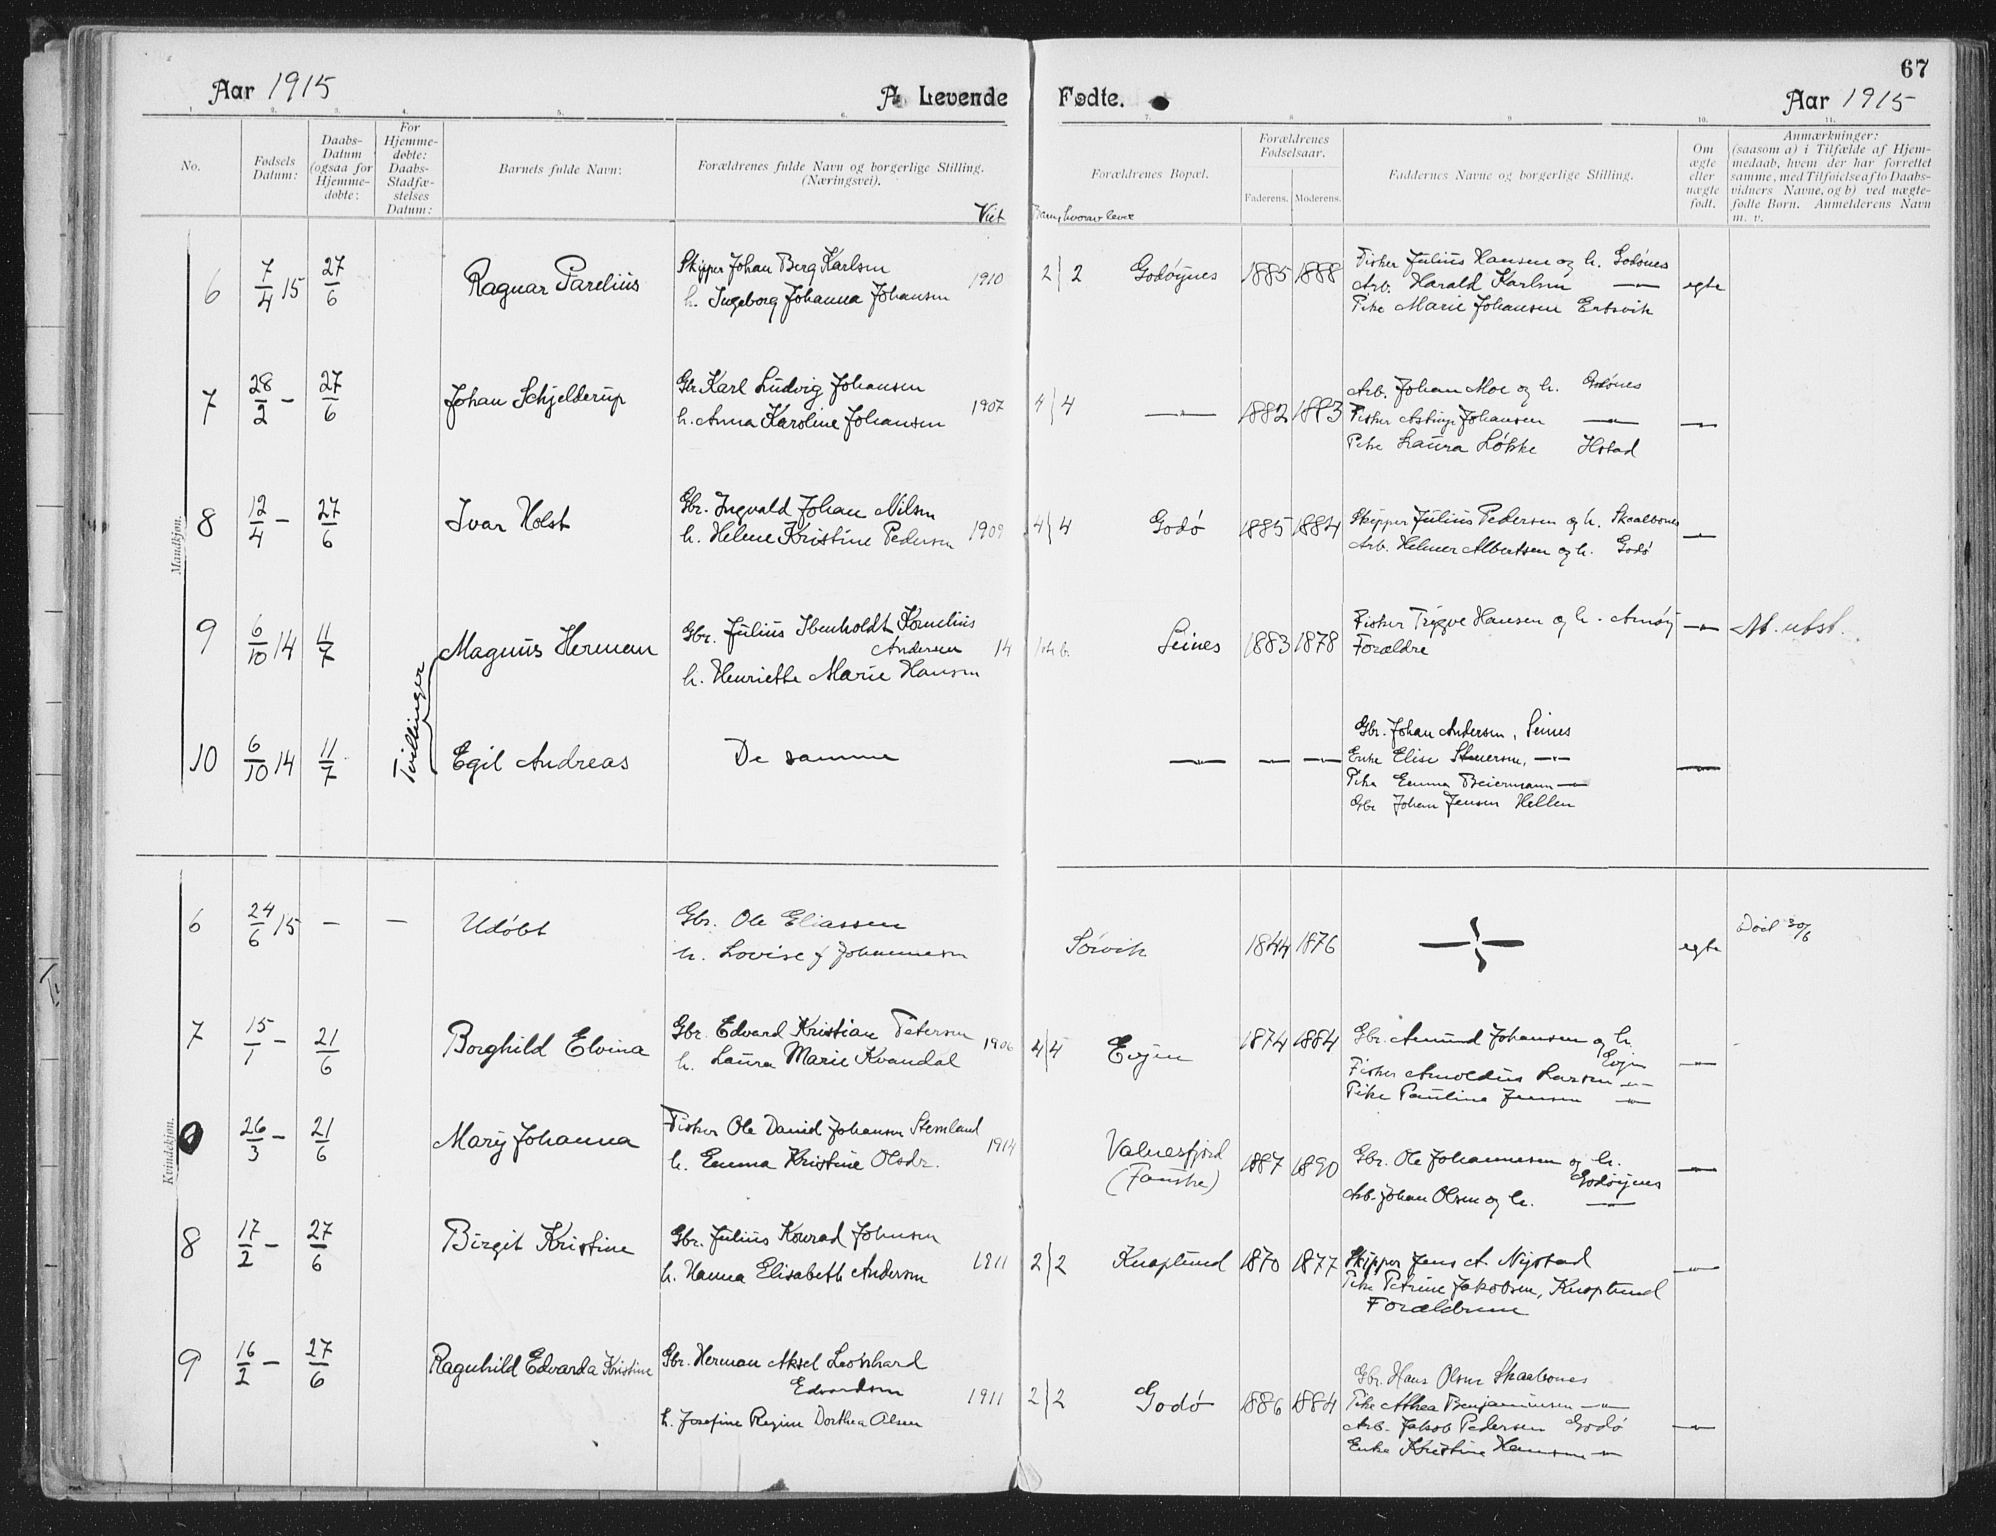 67
Aar 1915
A. Levende
Fødte.
Aar 1915
1. 2. 3. 4. 5. 6. 7. 8. 9. 10. 11.
No.
Fødsels
Datum:
Daabs-
Datum
(ogsaa for
Hjemme-
døbte:
For
Hjemme-
døbte:
Daabs-
Stadfæ-
stelses
Datum:
Barnets fulde Navn:
Forældrenes fulde Navn og borgerlige Stilling.
(Næringsvei).
Viet
Forældrenes Bopæl.
Forældrenes
Fødselsaar.
Faderens. Moderens.
Faddernes Navne og borgerlige Stilling.
Om
ægte
eller
uægte
født.
Anmærkninger:
(saasom a) i Tilfælde af Hjem-
medaab, hvem der har forrettet
samme, med Tilføielse af to Daabs-
vidners Navne, og b) ved uægte-
fødte Børn. Anmelderens Navn
m. v.
Mandkjøn.
6 7/4 15 27/6 Ragnar Parelius
Skipper Johan Berg Karlsen
h. Ingeborg Johanna Johansen
1910 2/2 Godøynes 1885 1888
Fisker Julius Hansen og h. Godønes
Arb. Harald Karlsen —"—
Pike Marie Johansen Ertsvik
egte
7 28/2 - 27/6 Johan Schjelderup
Gbr. Karl Ludvig Johansen
h. Anna Karoline Johansen
1907 4/4 —"— 1882 1883
Arb. Johan Moe og h. Godønes
Fisker Johansen —"—
Pike Laura Løkke Hstad
—"—
8 12/4 - 27/6 Ivar Holst
Gbr. Ingvald Johan Nilsen
h. Helene Kristine Pedersen
1909 4/4 Godø 1885 1884
Skipper Julius Pedersen og h. Skaalbones
Arb. Helmer Albertsen og h. Godø
—"—
9 6/10 14 11/7 Magnus Herman
Gbr. Julius Ibenholdt Kornelius
Andersen
h. Henriette Marie Hansen
14 Seines 1883 1878
Fisker Trygve Hansen og h. Arnøy
Forældre
—"— At. utst.
Tvillinger
10 6/10 14 11/7 Egil Andreas
De samme
—"— —"— —"—
Gbr. Johan Andersen, Seines
Enke Elise —"—
Pike Emma Beiermann —"—
Gbr Johan Jensen Hellen
—"—
Kvindekjøn.
6 24/6 15 — — Udøbt
Gbr. Ole Eliassen
h. Lovise J Johannesen
Sørvik 1844 1876
egte Død 30/6
7 15/1 - 21/6 Borghild Elvina
Gbr. Edvard Kristian Petersen
h. Laura Marie Kvandal
1906 4/4 Evjen 1874 1884
Gbr. Amund Johansen og h.
Evjen
Fisker Arnoldus Larsen —"—
Pike Pauline Jensen —"—
—"—
26/3 - 21/6 Mary Johanna
Fisker Ole Daniel Johansen Stemland
h. Emma Kristine Olsdr.
1914 Valnesfjord
(Fauske)
1887 1890
Gbr. Ole Johannesen og h.
Godøynes
Arb. Johan Olsen og h. —"—
—"—
8 17/2 - 27/6 Birgit Kristine
Gbr. Julius Konrad Johnsen
h. Hanna Elisabeth Andersen
1911 2/2 Knaplund 1870 1877
Skipper Jens A Nystad
Pike Petrine Jakobsen, Knaplund
Forældrene
—"—
9 16/2 - 27/6 Ragnhild Edvarda Kristine
Gbr. Herman Aksel Leonhard
Edvardsen
h. Josefine Regine Dorthea Olsen
1911 2/2 Godø 1886 1884
Gbr. Hans Olsen Skaalbones
Pike Althea Benjaminsen —"—
Arb. Jakob Pedersen Godø
Enke Kristine Hansen —"—
—"—